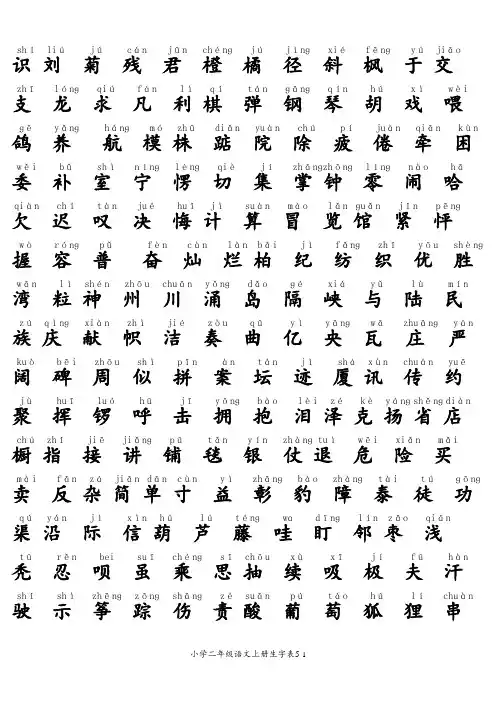 shí liú jú cán jūn chéng jú jìng xié fēng yú jiāo
识 刘 菊 残 君 橙 橘 径 斜 枫 于 交
zhī lóng qiú fán lì qí tán gāng qín hú xì wèi
支 龙 求 凡 利 棋 弹 钢 琴 胡 戏 喂
gē yǎng háng mó zhū diǎn yuàn chú pí juàn qiān kùn
鸽 养 航 模 株 踮 院 除 疲 倦 牵 困
wěi bǔ shì níng lèng qiè jí zhǎng zhōng líng nào hā
委 补 室 宁 愣 切 集 掌 钟 零 闹 哈
qiàn chí tàn jué huǐ jì suàn mào lǎn guǎn jǐn pēng
欠 迟 叹 决 悔 计 算 冒 览 馆 紧 怦
wò róng pǔ fèn càn làn bǎi jì fǎng zhī yōu shèng
握 容 普 奋 灿 烂 柏 纪 纺 织 优 胜
wān lì shén zhōu chuān yǒng dǎo gé xiá yǔ lù mín
湾 粒 神 州 川 涌 岛 隔 峡 与 陆 民
zú qìng xiàn zhì jié zòu qǔ yì yāng wǎ zhuāng yán
族 庆 献 帜 洁 奏 曲 亿 央 瓦 庄 严
kuò bēi zhōu shì pīn àn tán jì shà xùn chuán yuē
阔 碑 周 似 拼 案 坛 迹 厦 讯 传 约
jù huī luó hū jī yōng bào lèi zé kè yáng shěng diàn
聚 挥 锣 呼 击 拥 抱 泪 泽 克 扬 省 店
chú zhǐ jiē jiǎng pū tǎn yín zhàng tuì wēi xiǎn mǎi
橱 指 接 讲 铺 毯 银 仗 退 危 险 买
mài fǎn zá jiǎn dān cùn yì zhāng bào zhàng tài tú gōng
卖 反 杂 简 单 寸 益 彰 豹 障 泰 徒 功
qú yán jì xìn hú lú téng wa dīng lín zǎo qiǎn
渠 沿 际 信 葫 芦 藤 哇 盯 邻 枣 浅
tū rěn bei suī chéng sī chōu xù xī jí fū hàn
秃 忍 呗 虽 乘 思 抽 续 吸 极 夫 汗
shǐ shì zhēng zōng shāng zé suān pú táo hú lí chuàn
驶 示 筝 踪 伤 责 酸 葡 萄 狐 狸 串
小学二年级语文上册生字表5 1